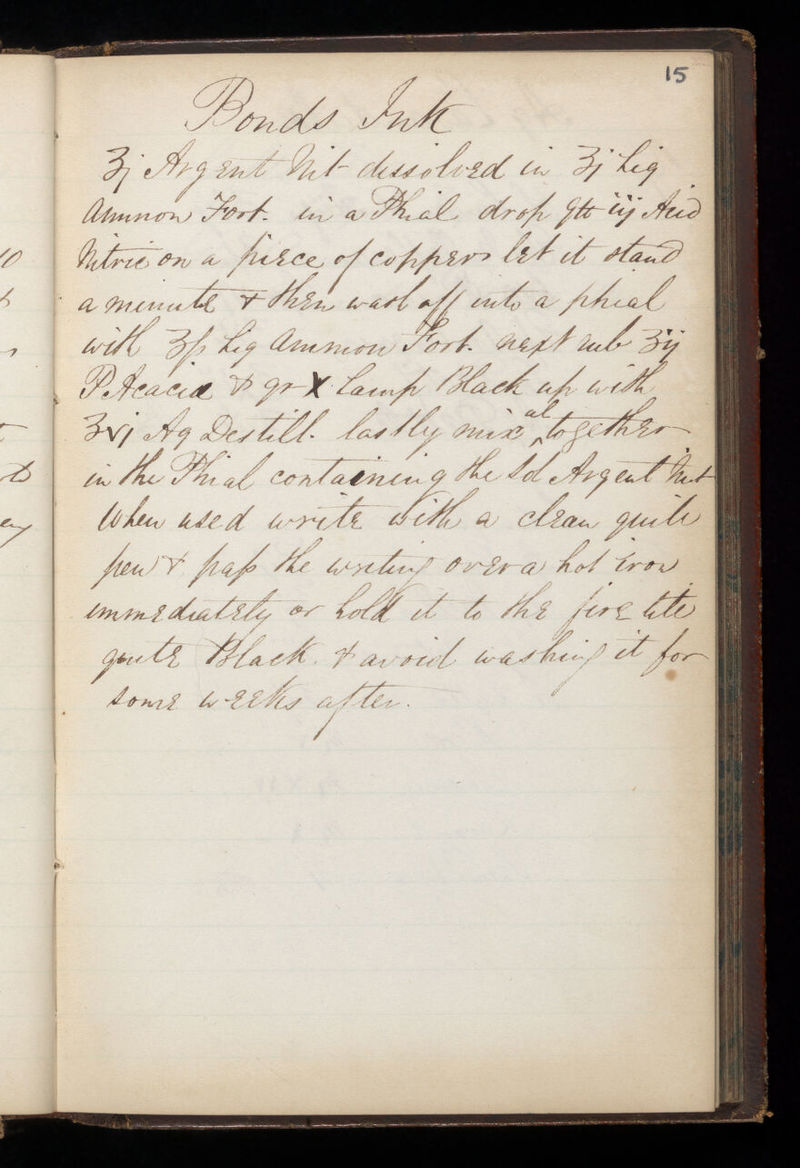 15
Bonds Ink
ʒj Argent Nit dissolved in ʒj Liq
Ammon Fort. in a Phial drop gtt iij Acid
Nitric on a piece of copper let it stand
a minute & then wash off into a phial
with ʒſs Liq Ammon Fort. next rub ʒij
P Acacia & gr X Lamp Black up with
ʒvj Aq Destill. lastly mix al together
in the Phial containing the Sol Argent Nit
When used write with a clean quill
pen & paſs the writing over a hot iron
immediately or hold it to the fire till
quite Black. & avoid washing it for
some weeks after.